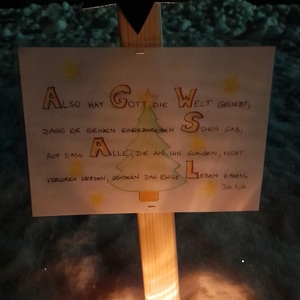 Also hat Gott die Welt geliebt,
dass er seinen eingeborenen Sohn gab,
auf dass Alle, die an ihn glauben, nicht
verloren werden, sondern das ewige Leben haben.
Joh 3,16